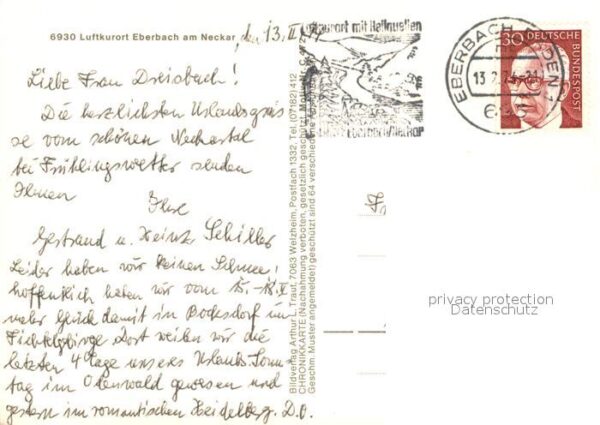 6930 Luftkurort Eberbach am Neckar, den 13. II. 74
Liebe Frau Dreisbach!
Die herzlichsten Urlaubsgrüs
se vom schönen Neckartal
bei Frühlingswetter senden
Ihnen
Ihre
Gertraud u. Heinz Schiller
Leider haben wir keinen Schnee!
hoffentlich haben wir vom 15.-18.II
mehr Glück damit in
Fichtelgebirge Dort weilen wir die
letzten 4 Tage unsers Urlaubs. Sonn
tag im Odenwald gewesen und
gestern im romantischen Heidelberg. D.O.
Bildverlag Arthur L. Traut, 7063 Welzheim, Postfach 1332, Tel. (07182) 412
CHRONIKKARTE (Nachahmung verboten, gesetzlich geschützt
Geschm. Muster angemeldet) geschützt sind 64 verschiedene
Kurort mit Heilquellen
Eberbach/Neckar
EBERBACH
13.2.74
30
DEUTSCHE
BUNDESPOST
privacy protection
Datenschutz